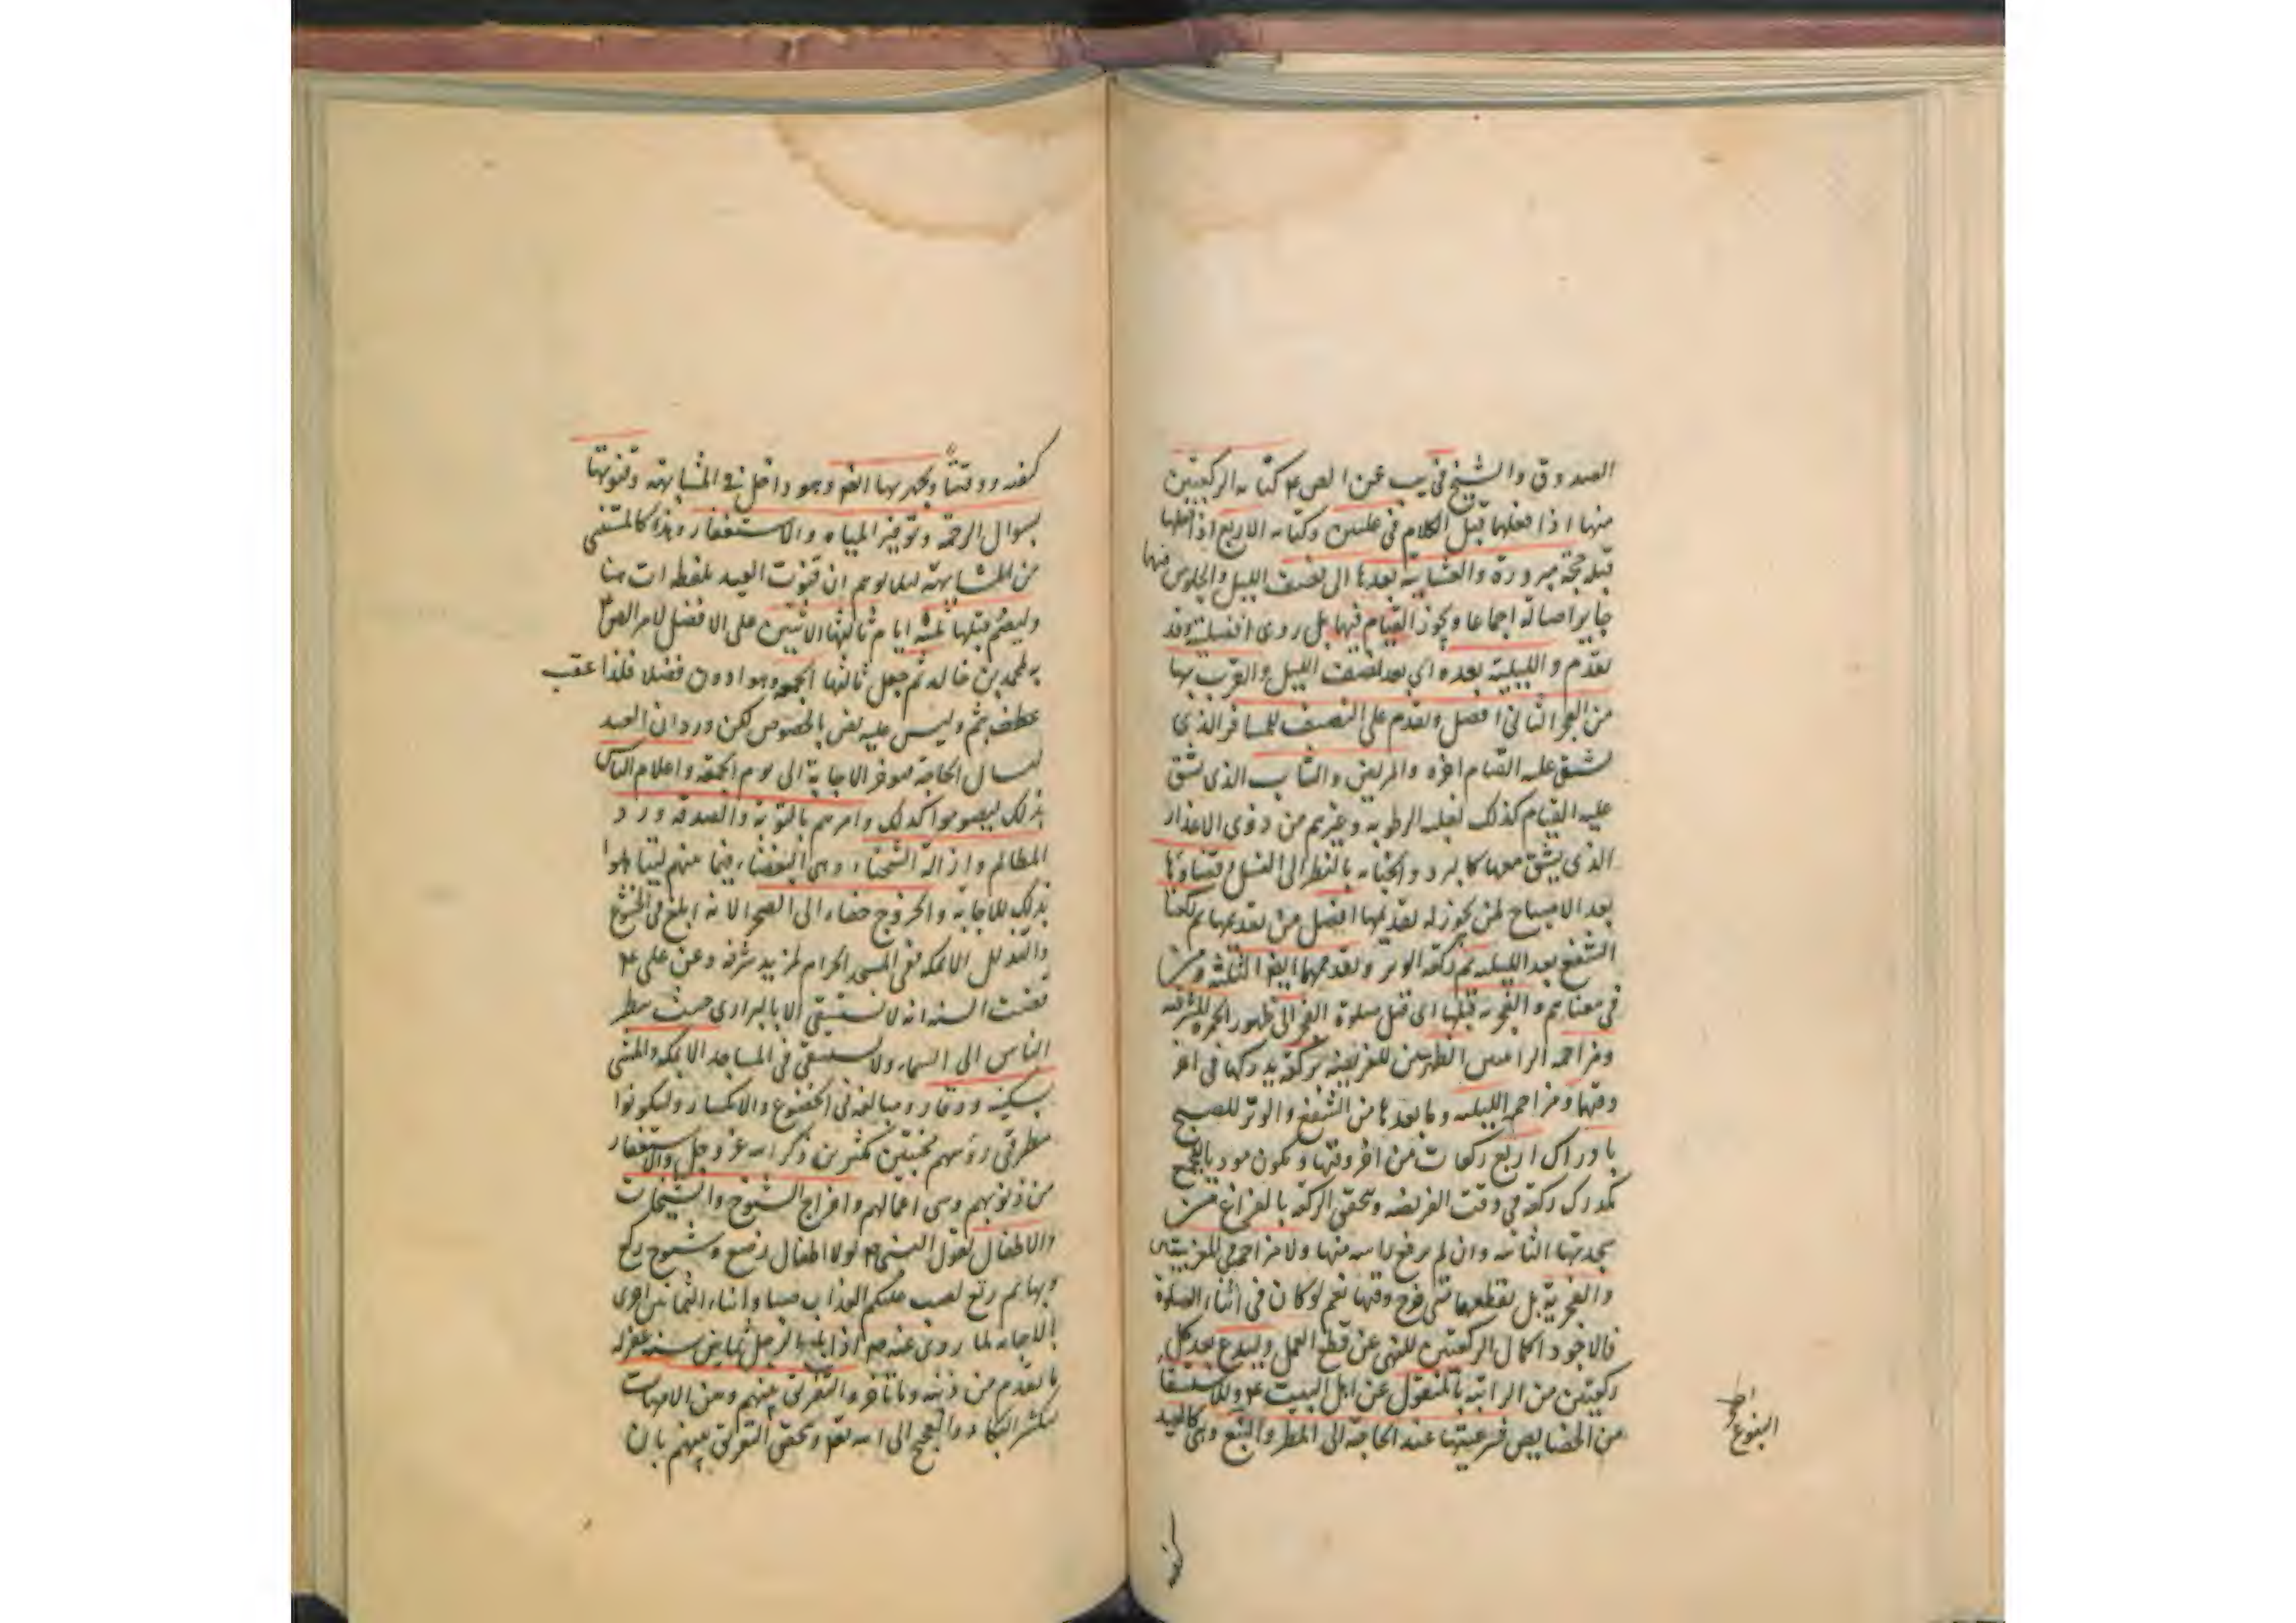 الصدوق والشيخ في يب عن الص ع كتابه الركعتين
منها اذا فعلها قبل الكلام في عليين وكتابه الاربع اذا فعلها
قبله حجة مبرورة والعشاية بعدها الى نصف الليل والجلوس فيها
جايز اصالة اجماعا ويجوز القيام فيها بل روى افضليته وقد
تقدم والليلية بعده اي بعد نصف الليل والقرب بها
من الفجر الثاني افضل وتقدم على النصف للمسافر الذي
يشق عليه القيام اخره والمريض والشاب الذي يشق
عليه القيام كذلك لغلبه الرطوبه وغيرهم من ذوى الاعذار
الذي يشق معها كالبرد والجنابه بالنظر الى الغسل وقضاؤها
بعد الاصباح لمن يجوز له تقديمها افضل من تقديمها ثم ركعتا
الشفع بعد الليليه ثم ركعة الوتر وتقدمهما ايضا الثلثة ومن
في معناهم والفجريه قبلها اى قبل صلوة الفجر الى ظهور الحمرة المشرقيه
ومزاحمه الراتبين الظهرين للفريضه بركعة يدركها في اخر
وقتها ومزاحمه الليليه وما بعدها من الشفع والوتر للصبح
بادراك اربع ركعات من اخر وقتها ويكون موديا للجميع
كمدرك ركعة في وقت الفريضه ويتحقق الركعة بالفراغ من
سجدتها الثانيه وان لم يرفع راسه منها ولا مزاحمة في المغربيه
والفجرية بل يقطعها متى خرج وقتها نعم لو كان في اثناء الصلوة
فالاجود اكمال الركعتين للنهى عن قطع العمل وليدع بعد كل
ركعتين من الراتبه بالمنقول عن اهل البيت ع وللاستسقا
من الخصايص شرعيتها عند الحاجة الى المطر والنبع وهى كالعيد
النبوع
كيفيه ووقتا ويجهر بها ايضا وهو داخل في المشابهته وقنوتها
بسوال الرحمة وتوفير المياه والاستغفار وهذه كالمستثنى
من المشابهته ليلا يوهم ان قنوت العيد بلفظه ات هنا
وليصم قبلها ثلثة ايام ثالثها الاثنين على الافضل لامر الص ع
به محمد بن خالد ثم جعل ثالثها الجمعه وهو ادون فضلا فلذا عقب
عطفه بثم وليس عليه نص بالخصوص لكن ورد ان العبد
ليسال الحاجة فيوخر الاجابة الى يوم الجمعة واعلام الناس
بذلك ليصوموا كذلك وامرهم بالتوبة والصدقه ورد
المظالم وازالة الشحناء وهى البغضاء فيما بينهم ليتاهبوا
بذلك للاجابة والخروج حفاء الى الصحرا لانه ابلغ في الخشوع
والتذلل الا بمكه ففى المسجد الحرام لمزيد شرفه وعن على ع
مضت السنه انه لا نستسقى الا بالبرارى حيث ينظر
الناس الى السماء ولا يستسقى في المساجد الا بمكه والمشى
بسكينه ووقار ومبالغه فى الخضوع والانكسار وليكونوا
مطرقى رؤسهم مخبتين مكثرين ذكر الله عز وجل والاستغفار
من ذنوبهم وسى اعمالهم واخراج الشيوخ والشيخات
والاطفال لقول النبى ص لولا اطفال رضع وشيوخ ركع
وبهايم رتع لصب عليكم العذاب صبا وابناء الثمانين احرى
بالاجابه لما روى عنه ص اذا بلغ الرجل ثمانين سنه غفر له
ما تقدم من ذنبه وما تاخر والتفريق بينهم وبين الامهات
ليكثر البكاء والعجيج الى الله تعالى ويتحقق التفريق بينهم بان